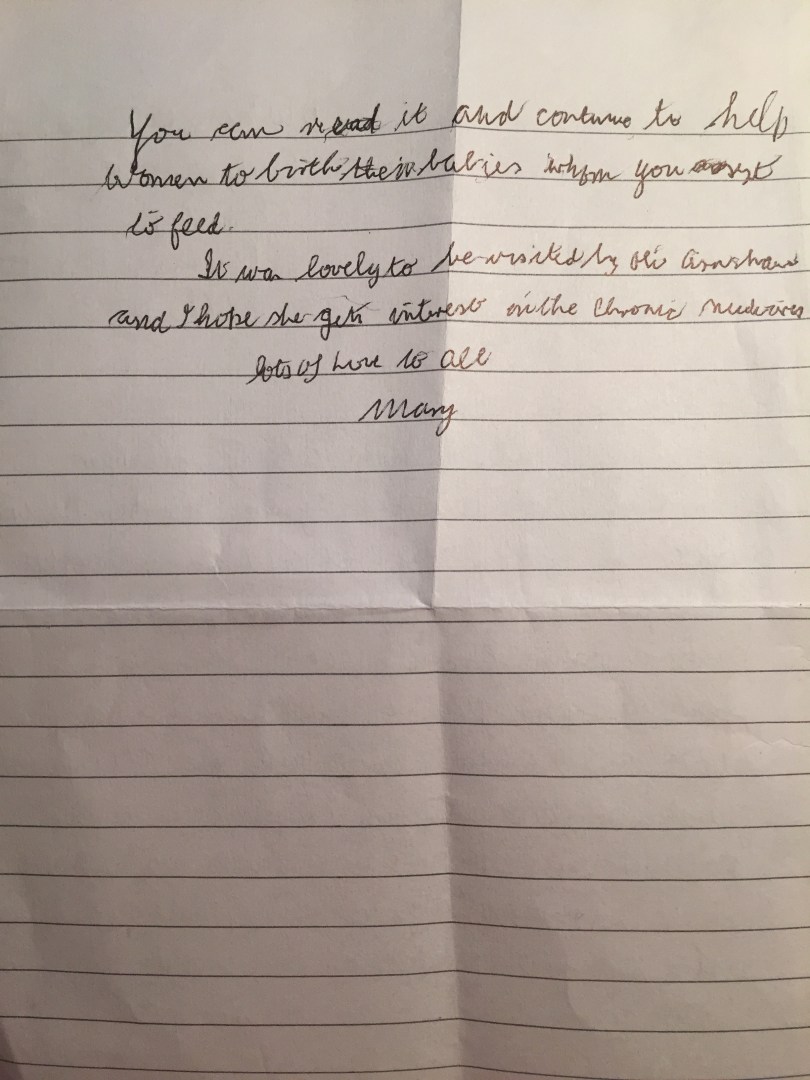 You can read it and continue to help
Women to birth their babies whom you
to feed.
It was lovely to be visited by
and I hope she gets interest in the Chronic
lots of love to all
Mary